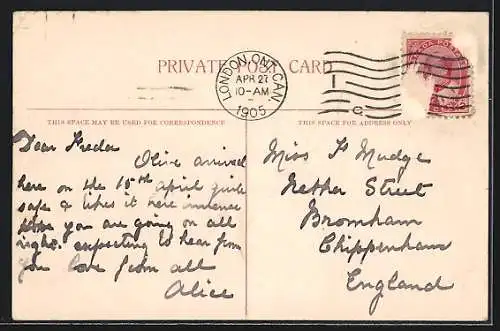 PRIVATE POST CARD
LONDON, ONT. CAN.
APR 27
10-AM
1905
C
THIS SPACE MAY BE USED FOR CORRESPONDENCE
THIS SPACE FOR ADDRESS ONLY
Dear Freda
Olive arrived
here on the 15th april quite
safe & likes it here imence
hope you are going on all
right. expecting to hear from
you love from all
Alice
Miss F Mudge
Netha Street
Bromham
Chippenham
England